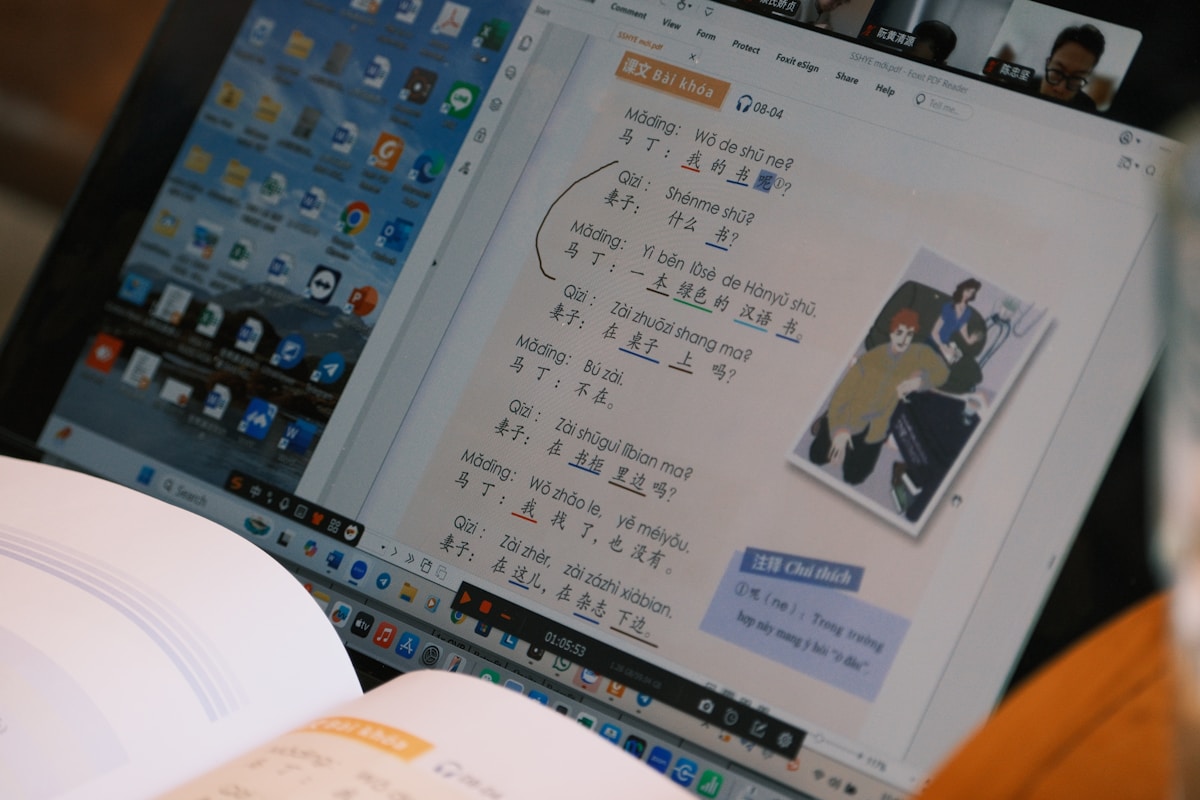 Comment View Form Protect Foxit eSign Share Help
SSHYE mới.pdf - Foxit PDF Reader
Tell me...
Start
SSHYE mới.pdf
阮黄清源
陈忠坚
课文 Bài khóa
08-04
Mǎdīng: Wǒ de shū ne?
马 丁: 我 的 书 呢①?
Qīzi: Shénme shū?
妻子: 什么 书?
Mǎdīng: Yì běn lǜsè de Hànyǔ shū.
马 丁: 一 本 绿色 的 汉语 书。
Qīzi: Zài zhuōzi shang ma?
妻子: 在 桌子 上 吗?
Mǎdīng: Bú zài.
马 丁: 不 在。
Qīzi: Zài shūguì lǐbian ma?
妻子: 在 书柜 里边 吗?
Mǎdīng: Wǒ zhǎo le, yě méiyǒu.
马 丁: 我 找 了, 也 没有。
Qīzi: Zài zhèr, zài zázhì xiàbian.
妻子: 在 这儿, 在 杂志 下边。
注释 Chú thích
①呢 (ne): Trong trường
hợp này mang ý hỏi "ở đâu".
Search
中
01:05:53
117%
Bài khóa
08-04